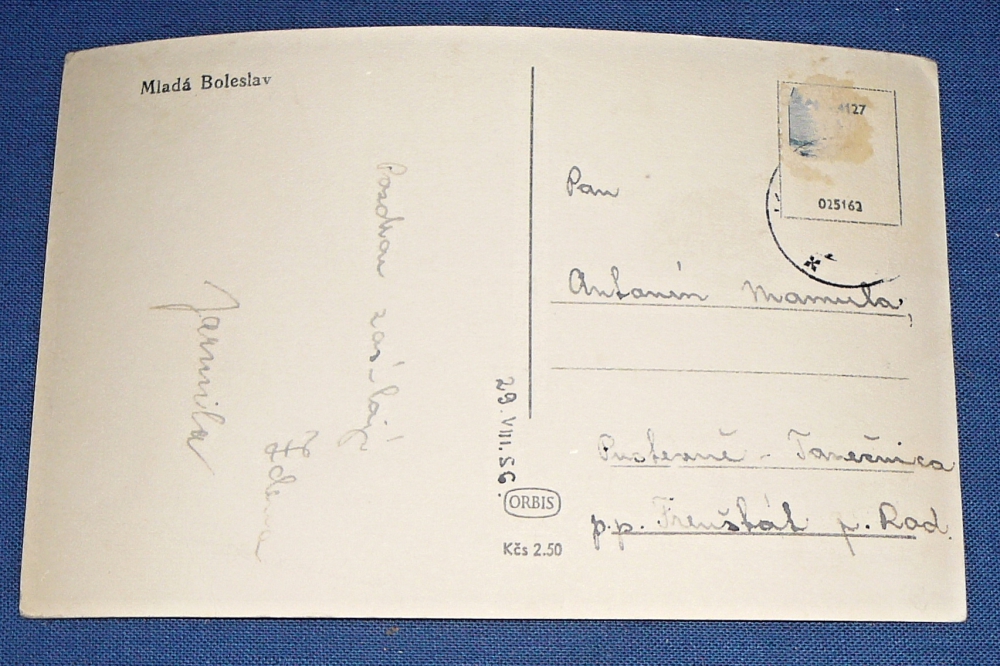 Mladá Boleslav
Pozdrav zasílají
Zdena
Jarmila
29.VIII.56.
ORBIS
Kčs 2.50
4127
025162
Pan
Antonín Mamula,
Pustevně - Tanečnica
p.p. Frenštát p. Rad.